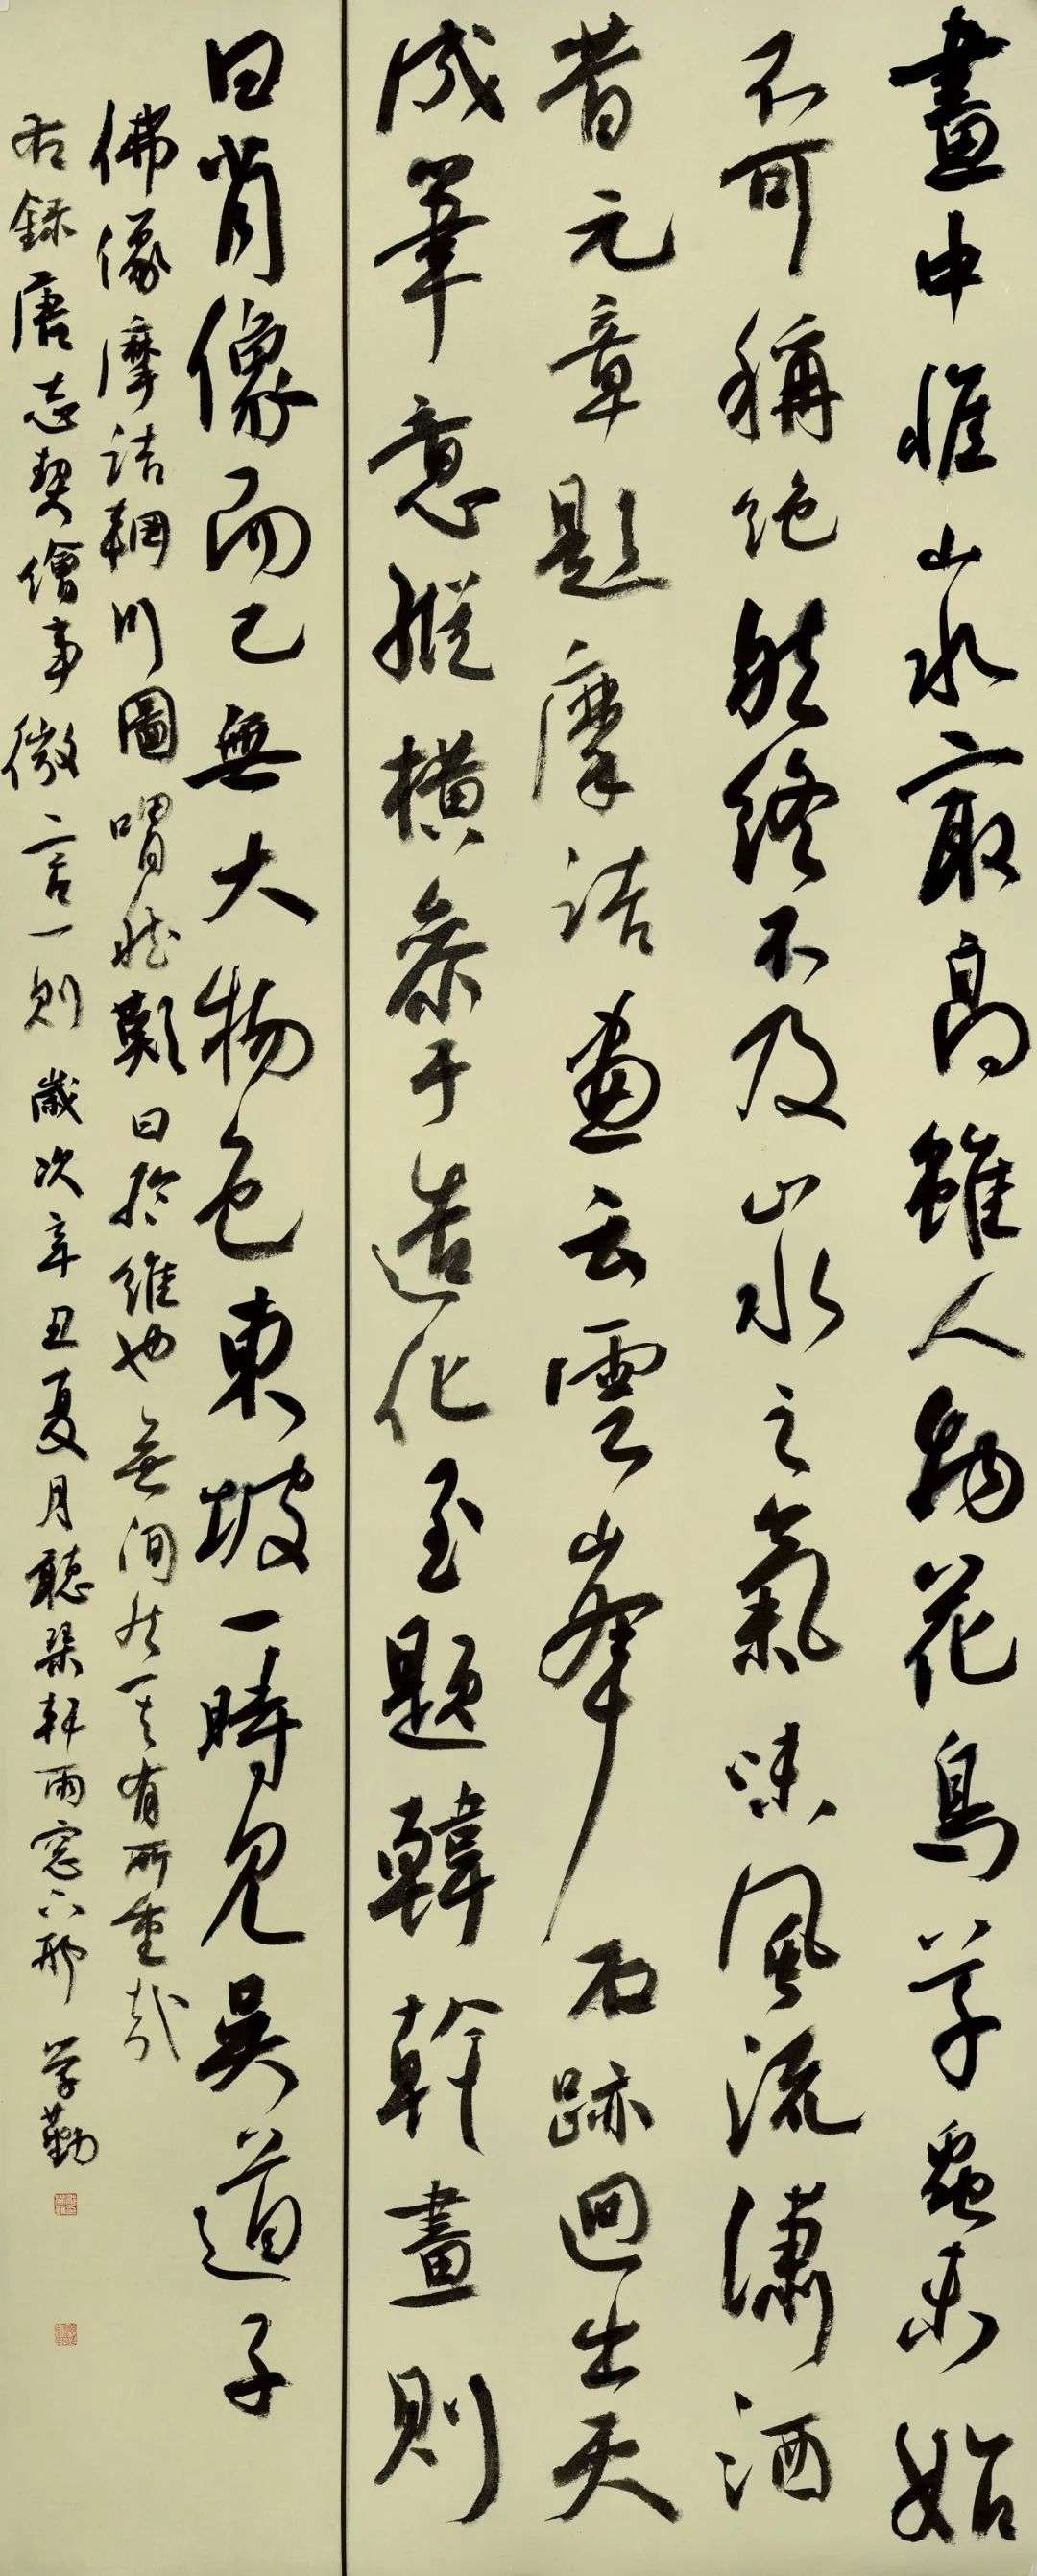 畫中惟山水最高雖人物花鳥草蟲未始
不可稱絕然終不及山水之氣味風流瀟洒
昔元章題摩詰畫云雲峯石跡迥出天
成筆意縱橫參于造化至題韓幹畫則
曰肖像而已無大物色東坡一時見吳道子
佛像摩詰輞川圖喟然歎曰於維也無間然其有所重哉
右錄唐志契繪事微言一則 歲次辛丑夏月聽琹軒雨窗下邢學勤